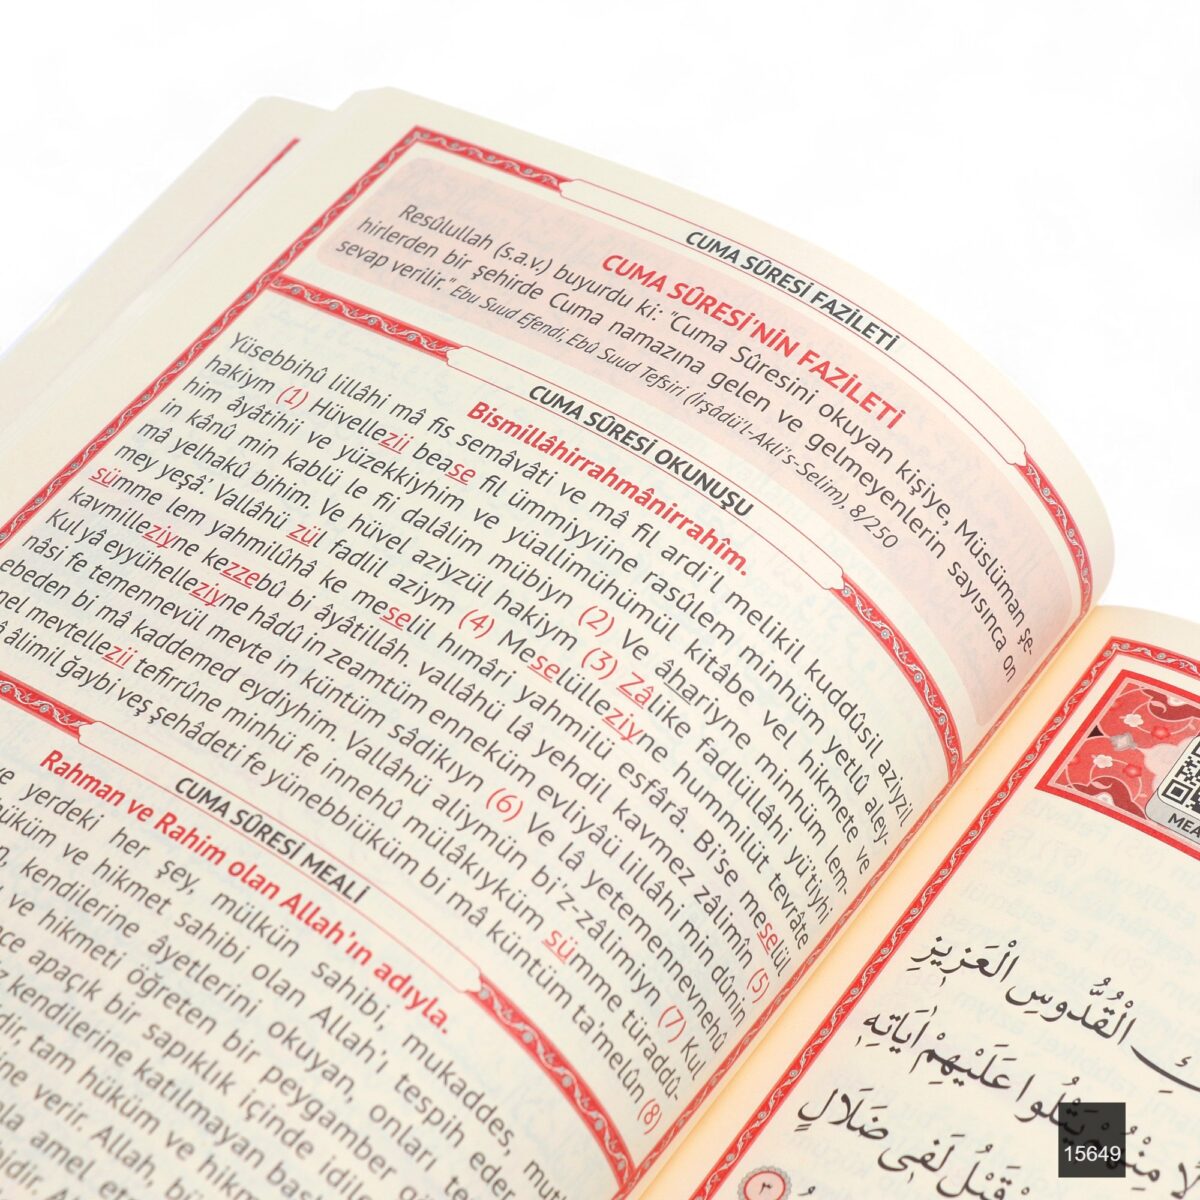 CUMA SÛRESİ FAZİLETİ
CUMA SÛRESİ'NİN FAZİLETİ
Resûlullah (s.a.v.) buyurdu ki: "Cuma Sûresini okuyan kişiye, Müslüman şe-
hirlerden bir şehirde Cuma namazına gelen ve gelmeyenlerin sayısınca on
sevap verilir." Ebu Suud Efendi, Ebû Suud Tefsiri (İrşâdü'l-Aklı's-Selim), 8/250
CUMA SÛRESİ OKUNUŞU
Bismillâhirrahmânirrahîm.
Yüsebbihû lillâhi mâ fis semâvâti ve mâ fil ardi'l melikil kuddûsil aziyzil
hakiym (1) Hüvellezii bease fil ümmiyyiine rasûlem minhüm yetlû aley-
him âyâtihii ve yüzekkiyhim ve yüallimühümül kitâbe vel hikmete ve
in kânû min kablü le fii dalâlim mübiyn (2) Ve âhariyne minhüm lem-
mâ yelhakû bihim. Ve hüvel aziyzül hakiym (3) Zâlike fadlüllâhi yü'tiyhi
mey yeşâ'. Vallâhü zül fadlil aziym (4) Meselüllezîyne hummilüt tevrâte
sümme lem yahmilûhâ ke meselil hımâri yahmilü esfârâ. Bi'se meselül
kavmilleziyne kezzebû bi âyâtillâh. vallâhü lâ yehdil kavmez zâlimîn (5)
Kul yâ eyyühelleziyne hâdû in zeamtüm enneküm evliyâü lillâhi min dûnin
nâsi fe temennevül mevte in küntüm sâdikıyn (6) Ve lâ yetemennevnehû
ebeden bi mâ kaddemed eydiyhim. Vallâhü aliymün bi'z-zâlimiyn (7) Kul
nel mevtellezii tefirrûne minhü fe innehû mülâkıyküm sümme türaddû-
âlimil ğaybi veş şehâdeti fe yünebbiüküm bi mâ küntüm ta'melûn (8)
CUMA SÛRESİ MEALİ
Rahman ve Rahim olan Allah'ın adıyla.
ve yerdeki her şey, mülkün sahibi, mukaddes,
hüküm ve hikmet sahibi olan Allah'ı tespih eder
kendilerine âyetlerini okuyan, onları
ve hikmeti öğreten bir peygamber
apaçık bir sapıklık içinde idiler
kendilerine katılmayan
tam hüküm ve
verir. Allah,
amel
الْقُدُّوسِ الْعَزِيزِ
عَلَيْهِمْ اٰيَاتِه۪
لَف۪ى ضَلَالٍ
15649